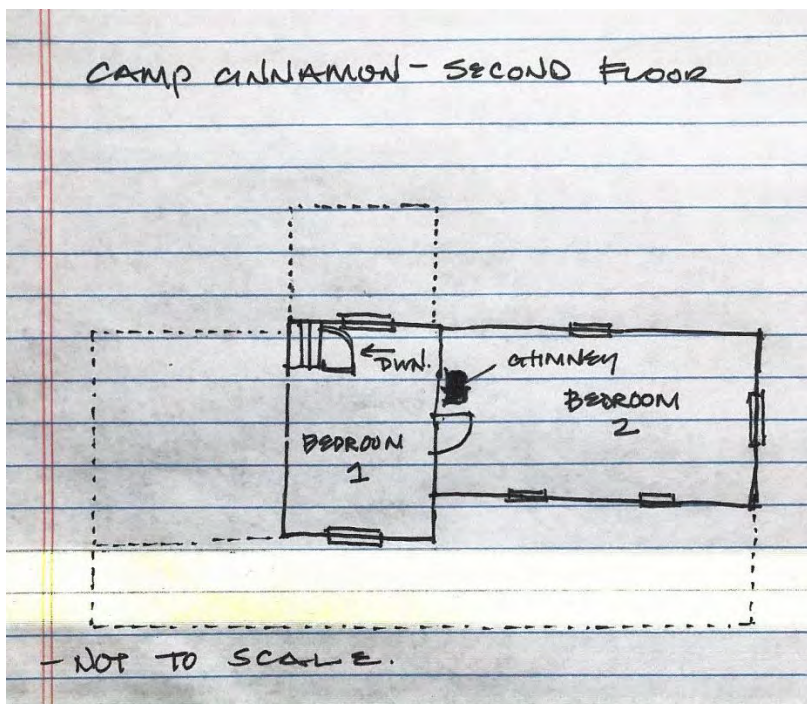 CAMP CINNAMON - SECOND FLOOR
← DWN.
CHIMNEY
BEDROOM
2
BEDROOM
1
- NOT TO SCALE.